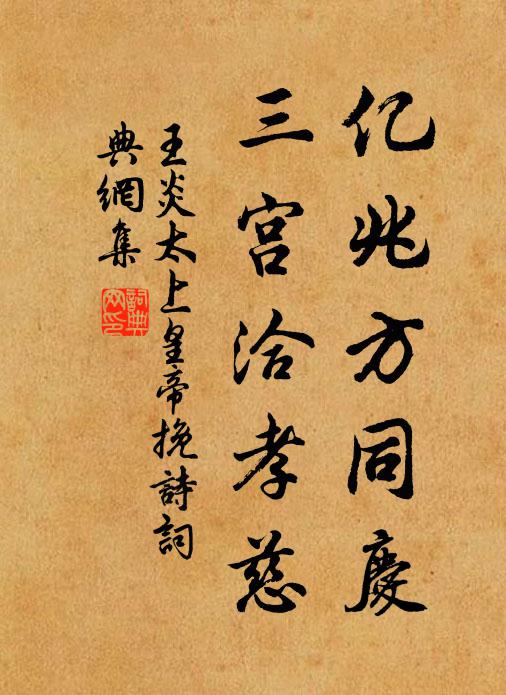 亿兆方同慶
三宫洽孝慈
王炎太上皇帝挽詩詞
典網集
詞典网印